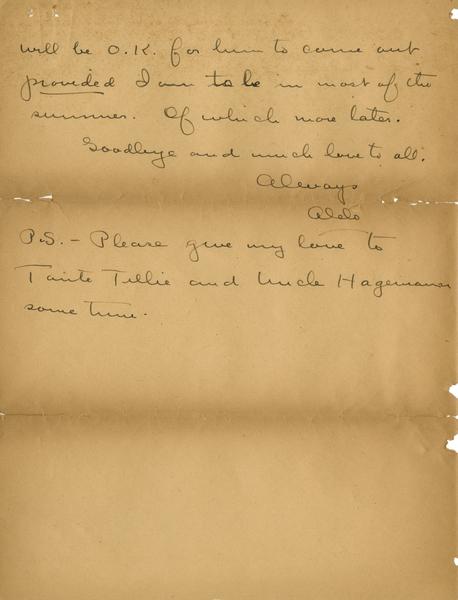 will be O.K. for him to come out
provided I am to be in most of the
summer. Of which more later.
Goodbye and much love to all.
Always
Aldo
P.S. – Please give my love to
Tante Tillie and Uncle Hagemann
some time.